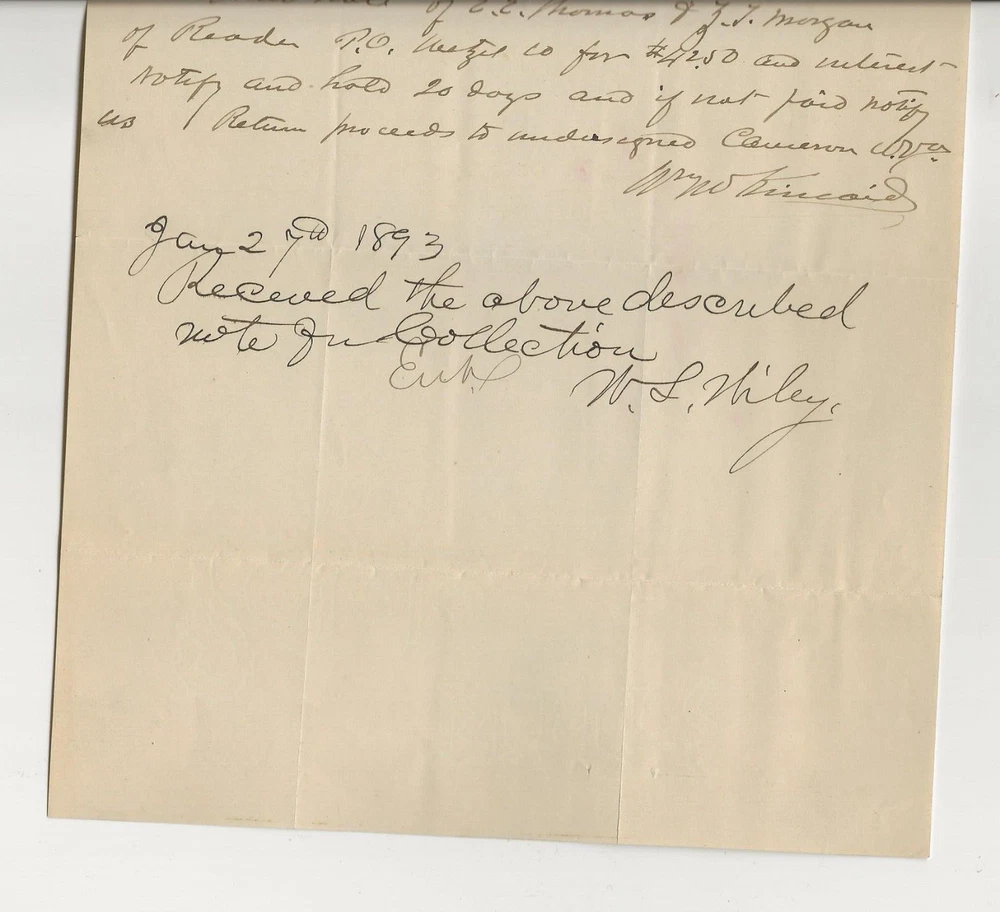 of C. C. Thomas & Z. T. Morgan
of Reader P.O. Wetzel co for $42.50 and interest
Notify and hold 20 days and if not paid notify
us / Return proceeds to undersigned Cameron W.Va.
Wm W Kincaid
Jan 27th 1893
Received the above described
note for Collection
W. S. Wiley.